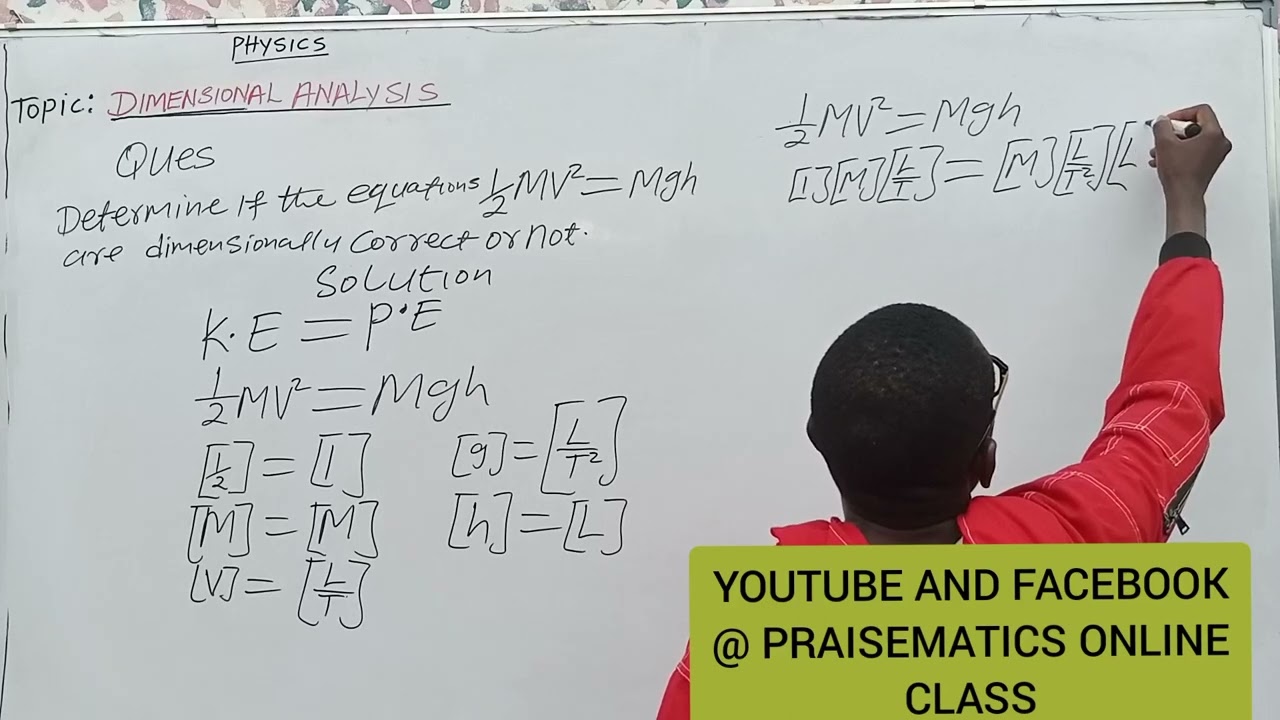 PHYSICS
Topic: DIMENSIONAL ANALYSIS
Ques
Determine if the equations ½MV² = Mgh
are dimensionally correct or not.
Solution
K.E = P.E
½MV² = Mgh
[½] = [1]
[M] = [M]
[V] = [L/T]
[g] = [L/T²]
[h] = [L]
½MV² = Mgh
[1][M][L/T] = [M][L/T²][L
YOUTUBE AND FACEBOOK
@ PRAISEMATICS ONLINE
CLASS